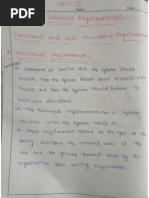 Unit - II
Software Requirements:-
Functional and non-functional Requirements
* Functional requirements:
Statement of
that the System Should
Provide, how the System Should react to Particular
inputs and how the System Should behave in
Particular
* The functional requirements for a System
describe what the System
do.
* These requirements depend on the type of
being developed, the expected users of the
and the general approach taken by the
organization when writing requirements.